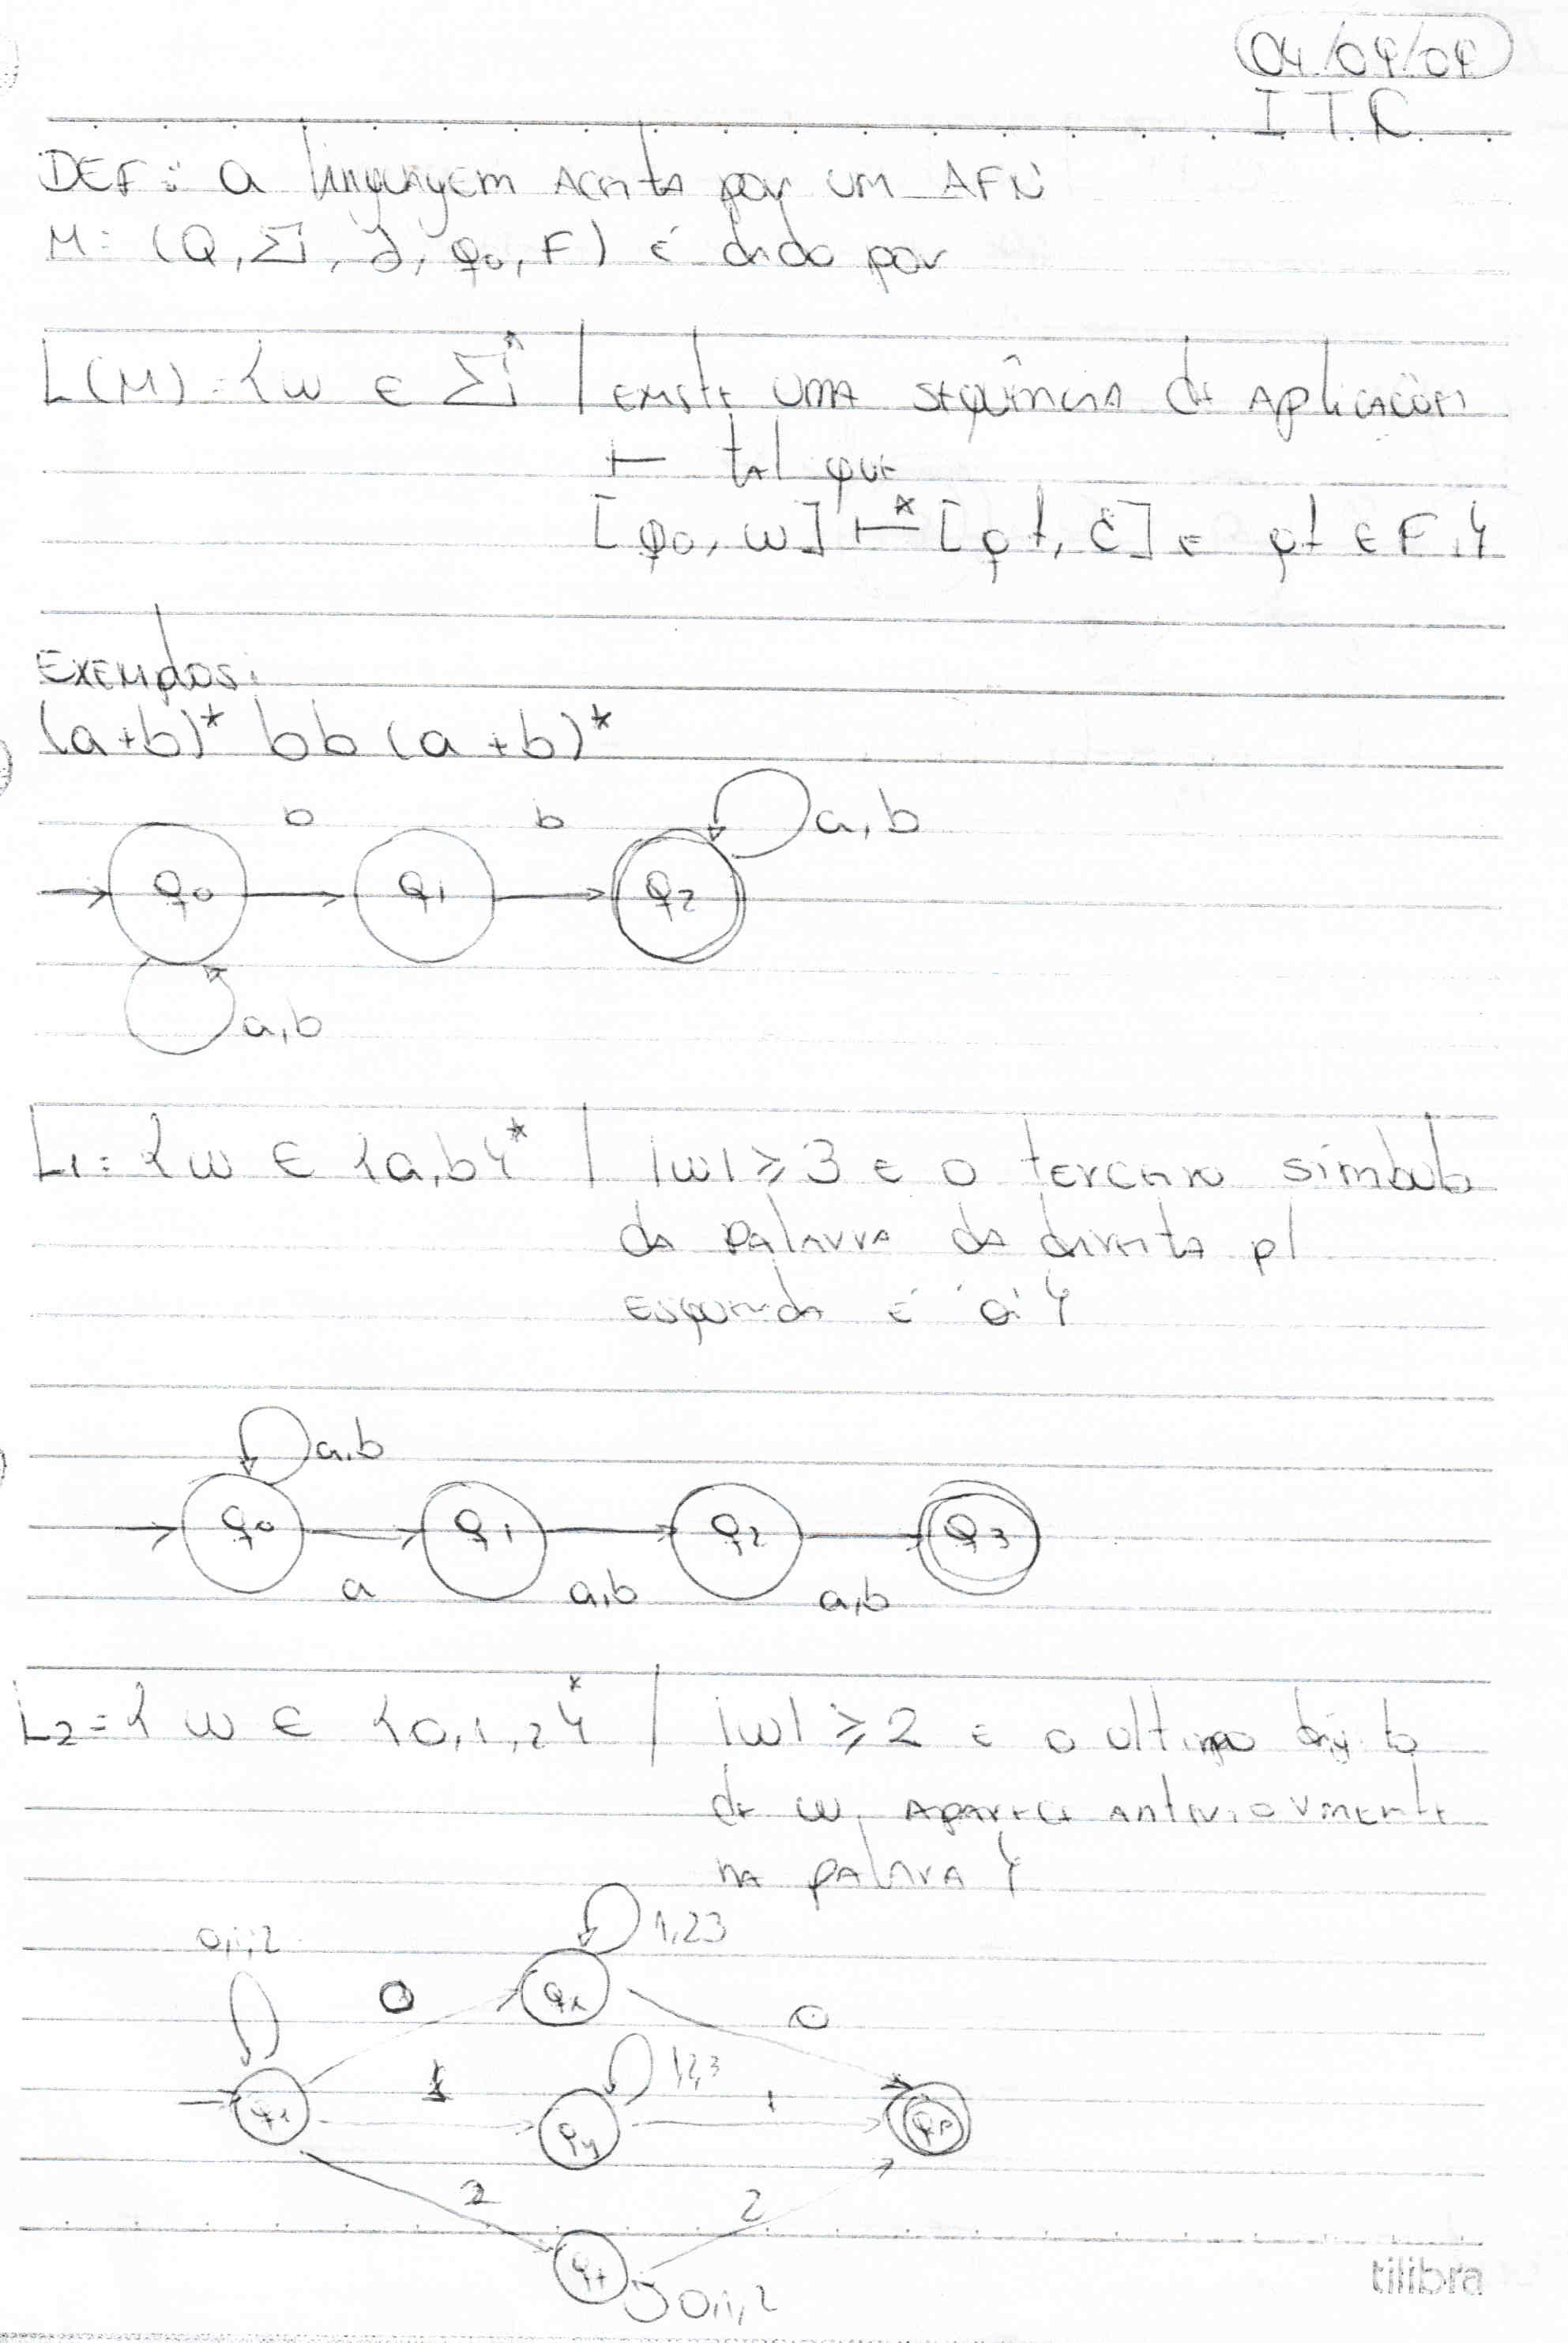 04/04/04
I.T.C
DEF: a linguagem aceita por um AFN
M = (Q, Σ, δ, q0, F) é dado por
L(M) = {w ∈ Σ* / existe uma sequência de aplicações
⊢ tal que
[q0, w] ⊢* [qf, ε] e qf ∈ F.}
Exemplos:
(a+b)* bb (a+b)*
b b a,b
q0 q1 q2
a,b
L1 = {w ∈ {a,b}* / |w| ≥ 3 e o terceiro símbolo
da palavra da direita p/
esquerda é 'a'}
a,b
q0 q1 q2 q3
a a,b a,b
L2 = {w ∈ {0,1,2}* / |w| ≥ 2 e o ultimo
de w, aparece anteriormente
na palavra}
0,1,2 1,23
0 qx 0
1 1,2,3 1
qy
2 2
0,1,2
tilibra